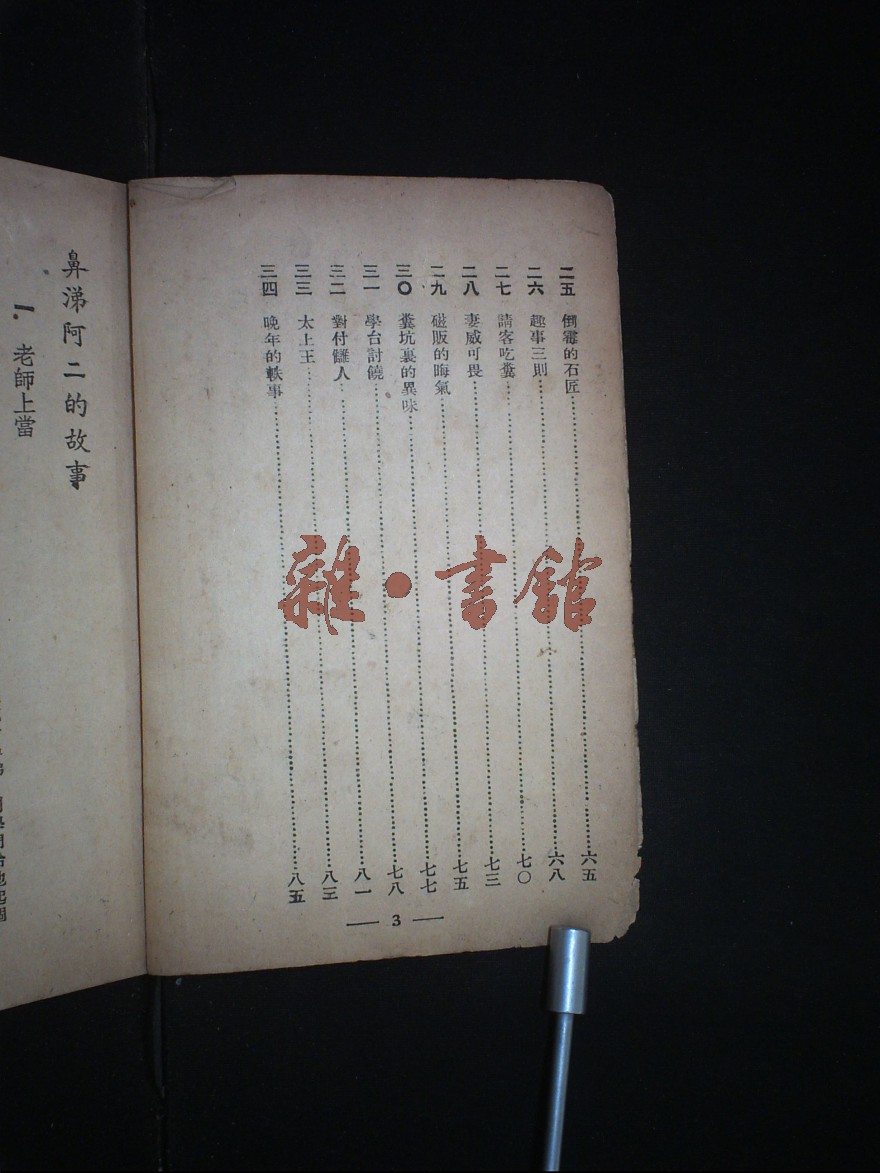 二五 倒霉的石匠……六五
二六 趣事三則……六八
二七 請客吃糞……七〇
二八 妻威可畏……七三
二九 磁販的晦氣……七五
三〇 糞坑裏的異味……七七
三一 學台討饒……七八
三二 對付讎人……八一
三三 太上王……八三
三四 晚年的軼事……八五
— 3 —
雜·書館
鼻涕阿二的故事
一 老師上當